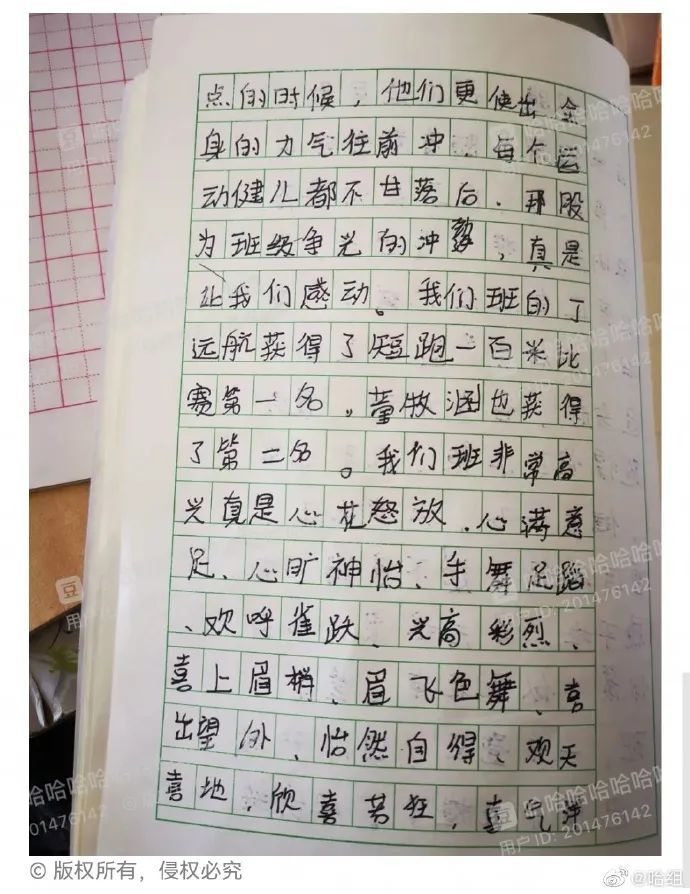 点的时候，他们更使出全
身的力气往前冲．每个运
动健儿都不甘落后．那股
为班级争光的冲劲，真是
让我们感动。我们班的丁
远航获得了短跑一百米比
赛第一名。董牧涵也获得
了第二名。我们班非常高
兴真是心花怒放、心满意
足、心旷神怡、手舞足蹈
、欢呼雀跃、兴高彩烈、
喜上眉梢、眉飞色舞、喜
出望外、怡然自得、欢天
喜地、欣喜若狂，喜气洋
哈哈哈哈哈哈
用户ID: 201476142
© 版权所有，侵权必究
@哈组